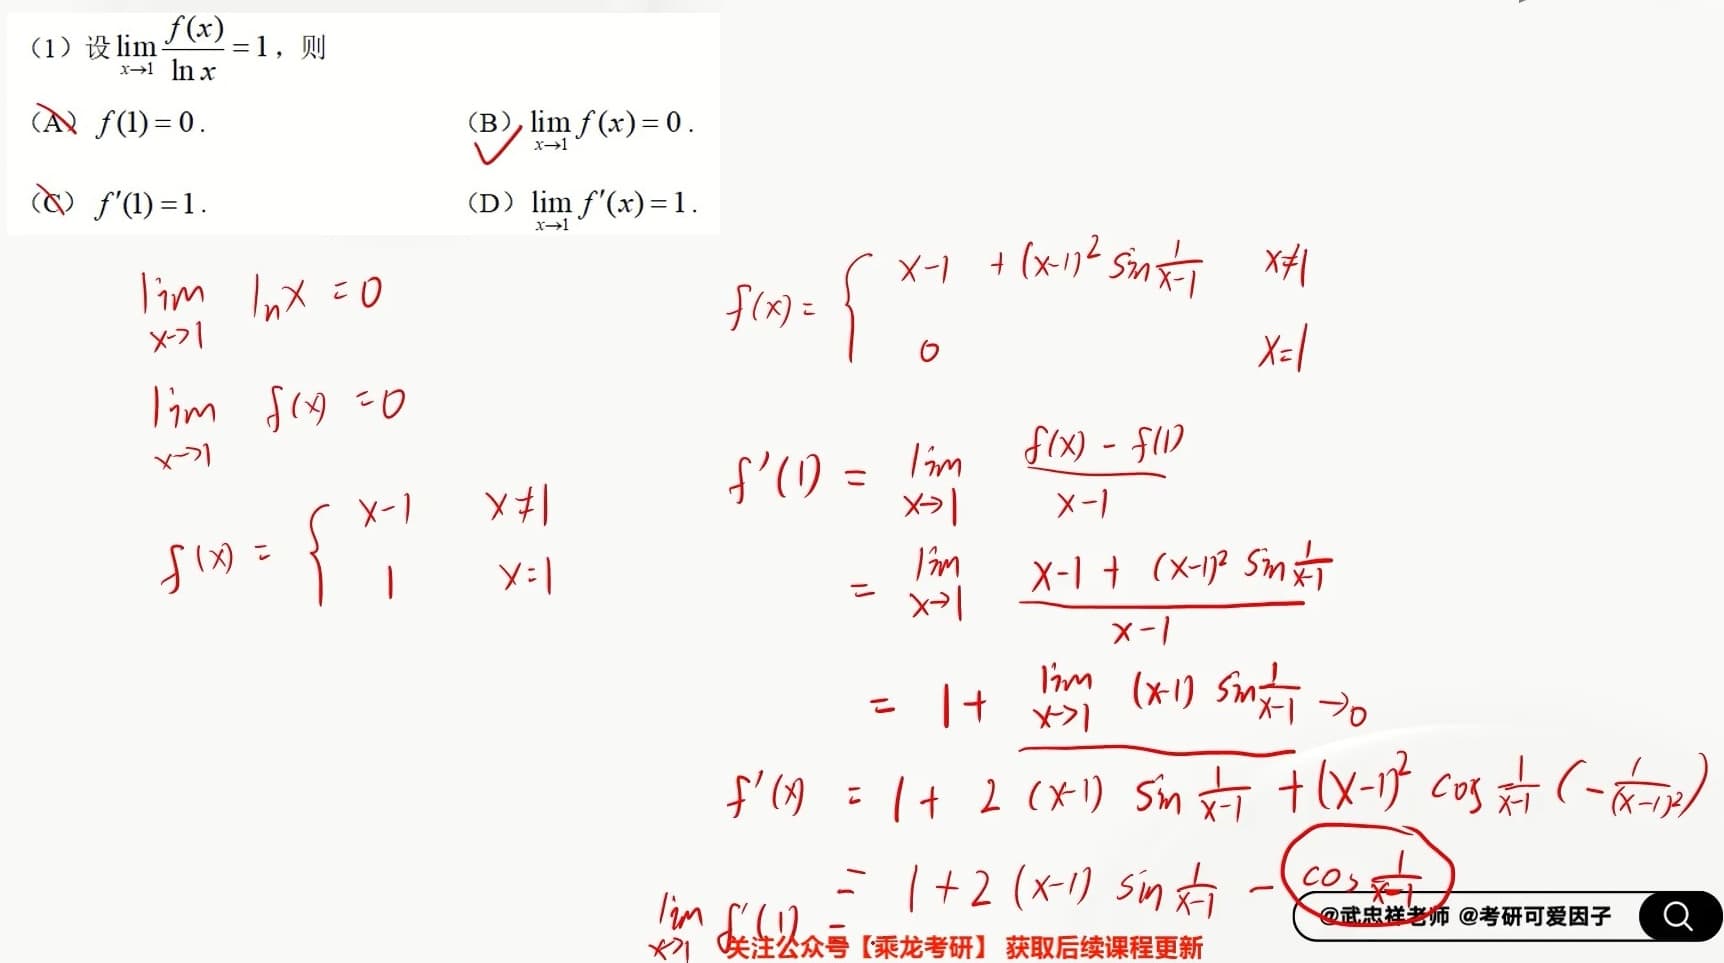 (1) 设 lim_{x→1} f(x)/ln x = 1，则
(A) f(1) = 0.
(B) lim_{x→1} f(x) = 0.
(C) f′(1) = 1.
(D) lim_{x→1} f′(x) = 1.
lim_{x→1} ln x = 0
lim_{x→1} f(x) = 0
f(x) = { x-1  x≠1
1  x=1
f(x) = { x-1 + (x-1)² sin 1/(x-1)  x≠1
0  x=1
f′(1) = lim_{x→1} (f(x) - f(1))/(x-1)
= lim_{x→1} (x-1 + (x-1)² sin 1/(x-1))/(x-1)
= 1 + lim_{x→1} (x-1) sin 1/(x-1) → 0
f′(x) = 1 + 2 (x-1) sin 1/(x-1) + (x-1)² cos 1/(x-1) (- 1/(x-1)²)
= 1 + 2 (x-1) sin 1/(x-1) - cos 1/(x-1)
lim_{x→1} f′(1) =
@武忠祥老师 @考研可爱因子
关注公众号【乘龙考研】 获取后续课程更新